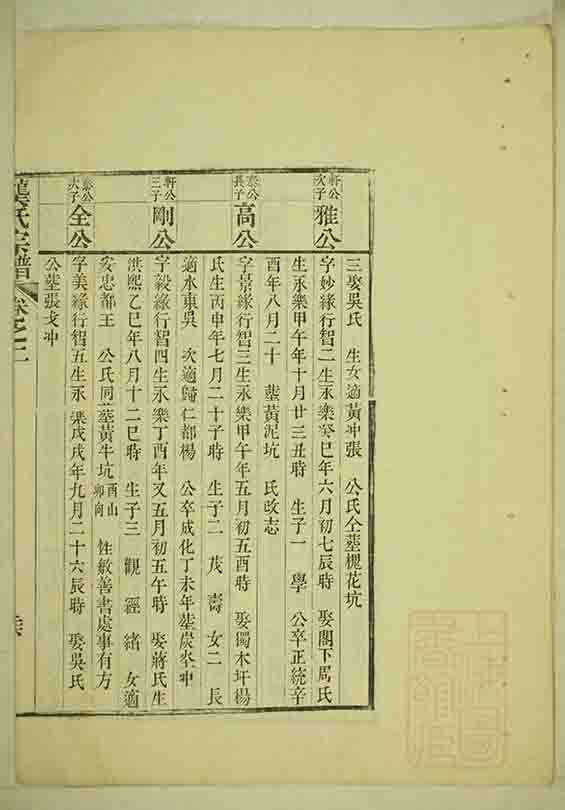 三娶吳氏 生女適黃冲張 公氏仝塟槐花坑
軒公次子 雅公 字妙緣行智二生永樂癸巳年六月初七辰時 娶閣下周氏
生永樂甲午年十月廿三丑時 生子一 學 公卒正統辛
酉年八月二十 塟黃泥坑 氏改志
泰公長子 高公 字景緣行智三生永樂甲午年五月初五酉時 娶獨木圩楊
氏生丙申年七月二十子時 生子二 茂 壽 女二 長
適水東吳 次適歸仁都楊 公卒成化丁未年塟炭冲
軒公三子 剛公 字毅緣行智四生永樂丁酉年又五月初五午時 娶蔣氏生
洪熙乙巳年八月十二巳時 生子三 觀 經 緒 女適
安忠都王 公氏同塟黃牛坑酉山卯向 性敏善書處事有方
泰公次子 全公 字美緣行智五生永樂戊戌年九月二十六辰時 娶吳氏
公塟張戈冲
氏宗譜 卷之二